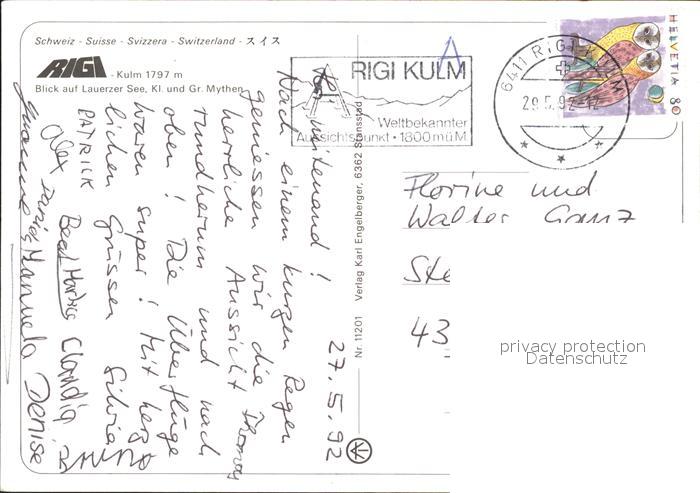 Schweiz - Suisse - Svizzera - Switzerland - スイス
RIGI - Kulm 1797 m
Blick auf Lauerzer See, Kl. und Gr. Mythen
RIGI KULM
Weltbekannter
Aussichtspunkt · 1800 m ü M
6411 RIGI KULM
29.5.92-12
HELVETIA 80
A
27.5.92
mitenand!
Nach einem kurzen Regen
geniessen wir die
herrliche Aussicht
rundherum und nach
oben! Die Überflüge
waren super! Mit herz
lichen Grüssen Silvia
Thomas
PATRICK Beat Claudia
Alex Manuela Denise
Nr. 11201 Verlag Karl Engelberger, 6362 Stansstad
Florine und
Walter Ganz
Ste
43
privacy protection
Datenschutz